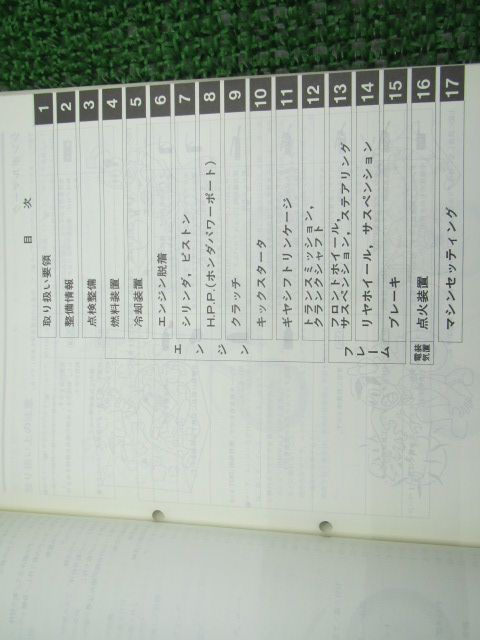 目 次
取り扱い要領 1
整備情報 2
点検整備 3
エンジン
燃料装置 4
冷却装置 5
エンジン脱着 6
シリンダ, ピストン 7
H.P.P.(ホンダパワーポート) 8
クラッチ 9
キックスタータ 10
ギヤシフトリンケージ 11
トランスミッション,
クランクシャフト 12
フレーム
フロントホイール,
サスペンション, ステアリング 13
リヤホイール, サスペンション 14
ブレーキ 15
電装
装置
点火装置 16
マシンセッティング 17